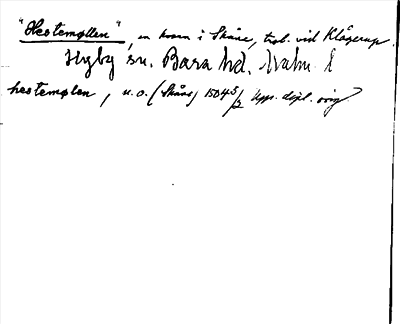 "Hestemøllen", en kvarn i Skåne, trol. vid Klågerup.
Hyby sn. Bara hd. Malm. l
hestemølen, u.o. (Skåne) 1504 5/2 Upps. dipl. orig